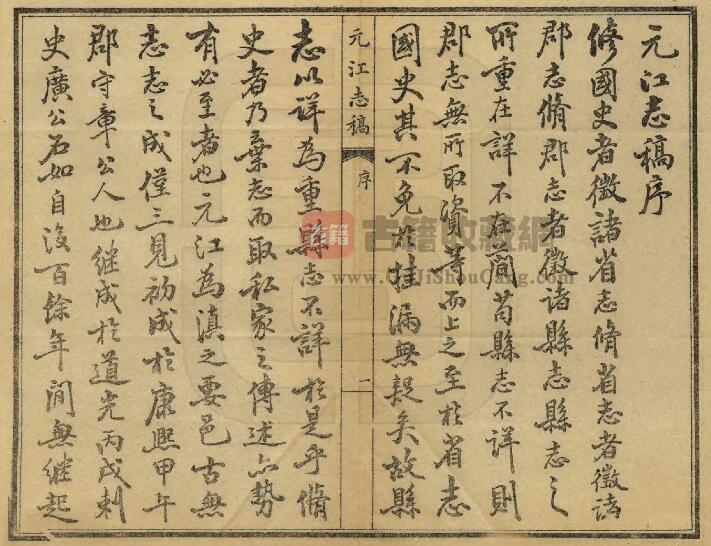 元江志稿序
修國史者徵諸省志脩省志者徵諸
郡志脩郡志者徵諸縣志縣志之
所重在詳不在簡苟縣志不詳則
郡志無所取資等而上之至於省志
國史其不免於挂漏無疑矣故縣
元江志稿
序
一
志以詳為重縣志不詳於是乎脩
史者乃棄志而取私家之傳述亦勢
有必至者也元江為滇之要邑古無
志志之成僅三見初成於康熙甲午
郡守章公人也继成於道光丙戌刺
史廣公石如自没百餘年間無继起
古籍
古籍收藏網
www.GuJiShouCang.com